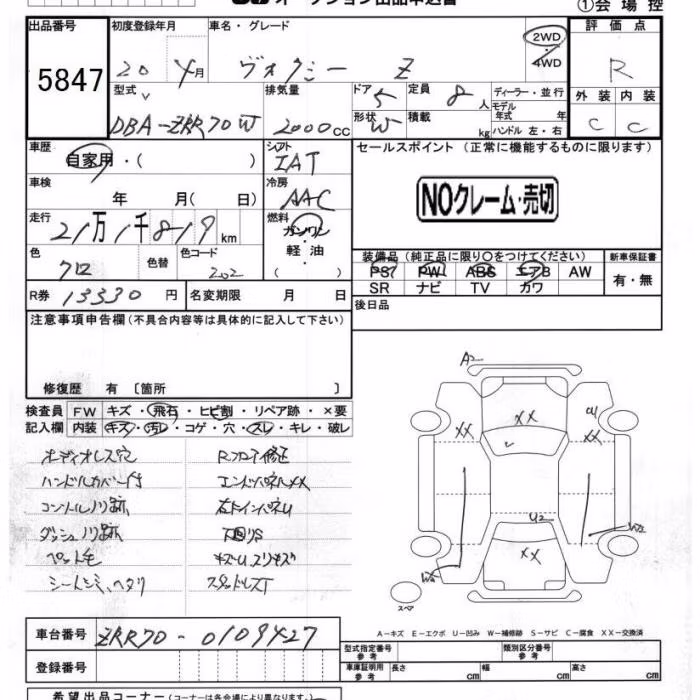 オークション出品申込書
①会場控
出品番号 初度登録年月 車名・グレード 2WD・4WD 評価点
5847 20年4月 ヴォクシー Z R
型式 排気量 ドア 定員 ディーラー・並行 外装 内装
DBA-ZRR70W 2000cc 5 8人 モデル年式 年 C C
形状 W 積載 kg ハンドル 左・右
車歴 シフト セールスポイント (正常に機能するものに限ります)
自家用・( ) IAT
車検 冷房
年 月( 日) AAC NOクレーム・売切
走行 燃料
21万1千819km ガソリン・軽油
色 色替 色コード 装備品(純正品に限り○をつけてください) 新車保証書
クロ 202 PS PW ABS エアB AW 有・無
SR ナビ TV カワ
R券 13330円 名変期限 月 日 後日品
注意事項申告欄(不具合内容等は具体的に記入して下さい)
修復歴 有 〔箇所 〕
検査員 FW キズ・飛石・ヒビ割・リペア跡・×要
記入欄 内装 キズ・汚レ・コゲ・穴・スレ・キレ・破レ
オーディオレス穴 Rフロア修正
ハンドルカバー付 エンドパネルXX
コンソールノリ跡 右トインパネU
ダッシュノリ跡 下回りS
ペット毛 キズU.スリキズ
シートシミ、ヘタリ スタッドレスT
A2
XX
XX
XX
U2
XX
W2
スペア
A-キズ E-エクボ U-凹み W-補修跡 S-サビ C-腐食 XX-交換済
車台番号 ZRR70-0109427
型式指定番号 参考 類別区分番号 参考
登録番号 車庫証明用 参考 長さ cm 幅 cm 高さ cm
希望出品コーナー(コーナーは各会場により異なります)